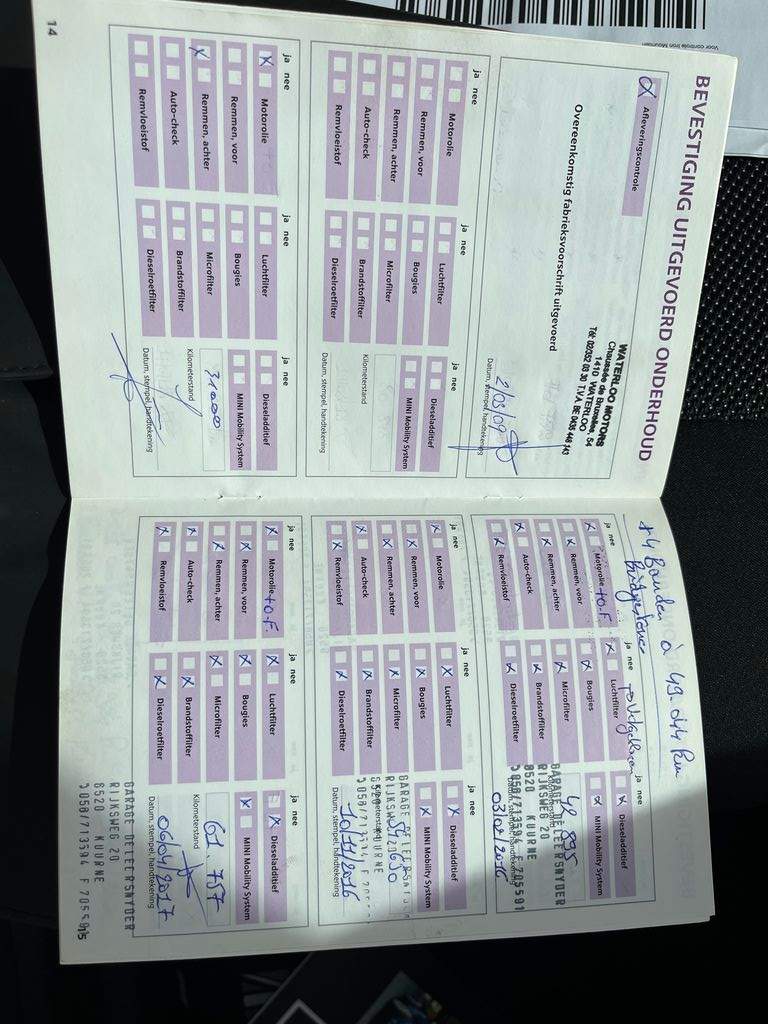 Voor controle Iron Mountain
BEVESTIGING UITGEVOERD ONDERHOUD
Afleveringscontrole
Overeenkomstig fabrieksvoorschrift uitgevoerd
WATERLOO MOTORS
Chaussée de Bruxelles, 54
1410 WATERLOO
Tél: 02/352 03 30 T.V.A. BE 0436 448 143
2/03/09
Datum, stempel, handtekening
ja nee
Motorolie
Remmen, voor
Remmen, achter
Auto-check
Remvloeistof
ja nee
Luchtfilter
Bougies
Microfilter
Brandstoffilter
Dieselroetfilter
ja nee
Dieseladditief
MINI Mobility System
Kilometerstand
Datum, stempel, handtekening
ja nee
X Motorolie
Remmen, voor
X Remmen, achter
Auto-check
Remvloeistof
ja nee
Luchtfilter
Bougies
Microfilter
Brandstoffilter
Dieselroetfilter
ja nee
Dieseladditief
MINI Mobility System
31000
Kilometerstand
Datum, stempel, handtekening
14
+4 Banden à 49.044 km
Bridgestone
ja nee
X Motorolie +O.F.
X Remmen, voor
X Remmen, achter
X Auto-check
X Remvloeistof
ja nee
X Luchtfilter
X Bougies
X Microfilter
X Brandstoffilter
X Dieselroetfilter
ja nee
X Dieseladditief
X MINI Mobility System
48.895
GARAGE DELEERSNYDER
RIJKSWEG 20
8520 KUURNE
056/713594 F 705591
Datum, stempel, handtekening
03/02/2016
ja nee
X Motorolie
X Remmen, voor
X Remmen, achter
X Auto-check
X Remvloeistof
ja nee
X Luchtfilter
X Bougies
X Microfilter
X Brandstoffilter
X Dieselroetfilter
ja nee
X Dieseladditief
X MINI Mobility System
GARAGE DELEERSNYDER
RIJKSWEG 20
8520 KUURNE
Kilometerstand
056/713594 F 705591
Datum, stempel, handtekening
10/11/2016
ja nee
X Motorolie +O.F.
X Remmen, voor
X Remmen, achter
X Auto-check
X Remvloeistof
ja nee
X Luchtfilter
X Bougies
X Microfilter
X Brandstoffilter
X Dieselroetfilter
ja nee
X Dieseladditief
X MINI Mobility System
61.757
Kilometerstand
Datum, stempel, handtekening
06/04/2017
GARAGE DELEERSNYDER
RIJKSWEG 20
8520 KUURNE
056/713594 F 705591
15